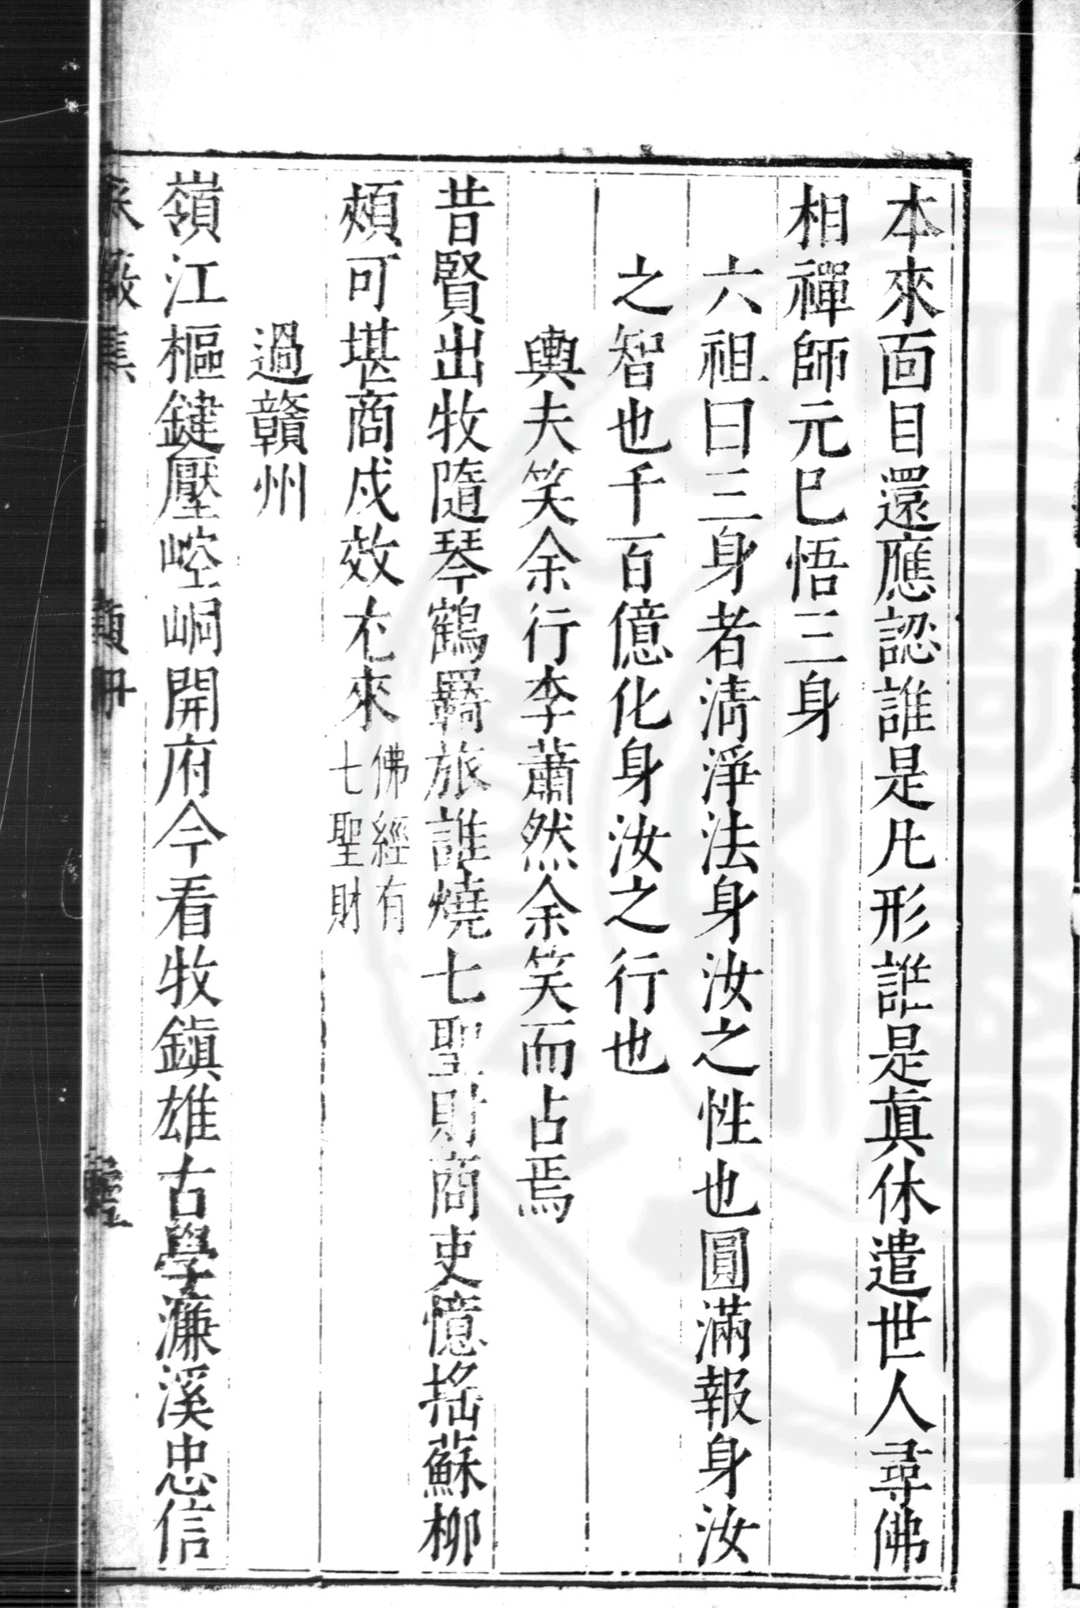 本來面目還應認誰是凡形誰是眞休遣世人尋佛
相禪師元已悟三身
六祖曰三身者淸淨法身汝之性也圓滿報身汝
之智也千百億化身汝之行也
輿夫笑余行李蕭然余笑而占焉
昔賢出牧隨琴鶴羇旅誰燒七聖財商吏憶搖蘇柳
頰可堪商戍效尤來
佛經有
七聖財
過贛州
嶺江樞鍵壓崆峒開府今看牧鎭雄古學濂溪忠信